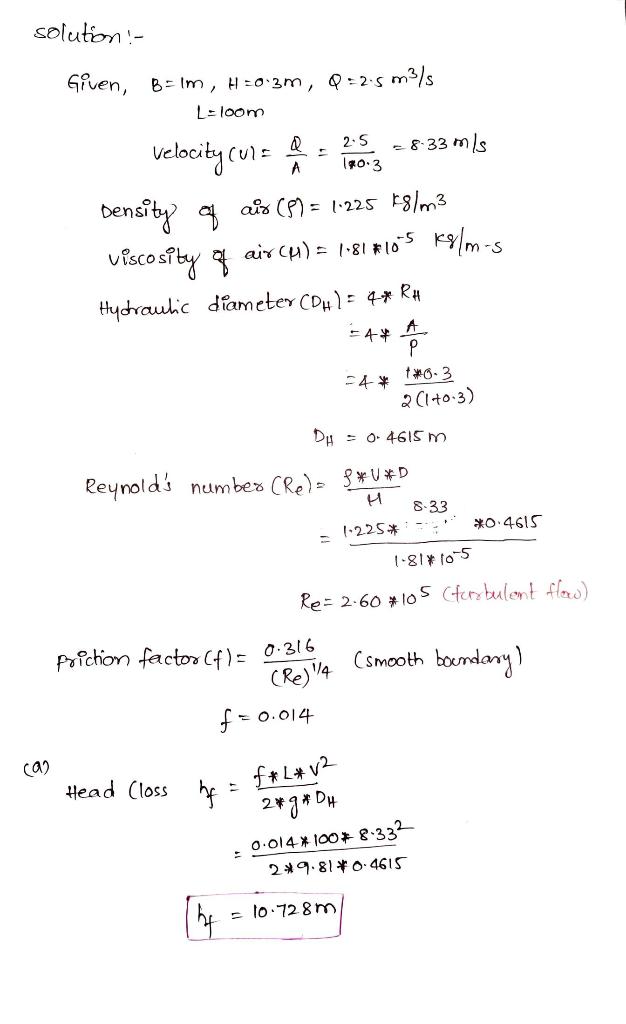 solution :-
Given, B=1m, H=0.3m, Q=2.5 m³/s
L=100m
Velocity (U) = Q/A = 2.5/1*0.3 = 8.33 m/s
Density of air (ρ) = 1.225 kg/m³
viscosity of air (μ) = 1.81*10⁻⁵ kg/m-s
Hydraulic diameter (DH) = 4* RH
=4* A/P
=4* 1*0.3/2(1+0.3)
DH = 0.4615 m
Reynold's number (Re) = ρ*U*D/μ
= 1.225*8.33*0.4615/1.81*10⁻⁵
Re = 2.60 *10⁵ (turbulent flow)
Friction factor (f) = 0.316/(Re)^1/4 (smooth boundary)
f = 0.014
(a)
Head (loss hf = f*L*V²/2*g*DH
= 0.014*100*8.33²/2*9.81*0.4615
hf = 10.728m